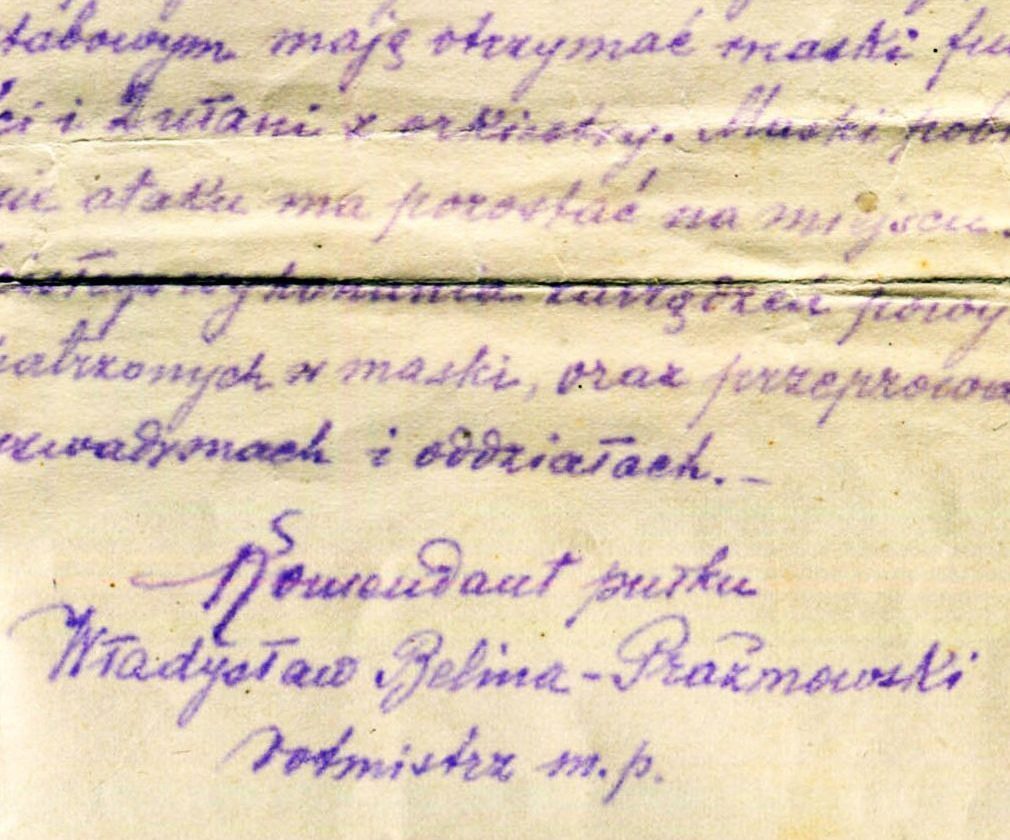 tabowym mają otrzymać maski
i i Zułani z orkiestry. Maski
ataku ma pozostać na miejscu.
wykonania zarządzeń powy
patrzonych w maski, oraz przeprowa
zwadronach i oddziałach.–
Komendant pułku
Władysław Belina-Prażmowski
rotmistrz m. p.